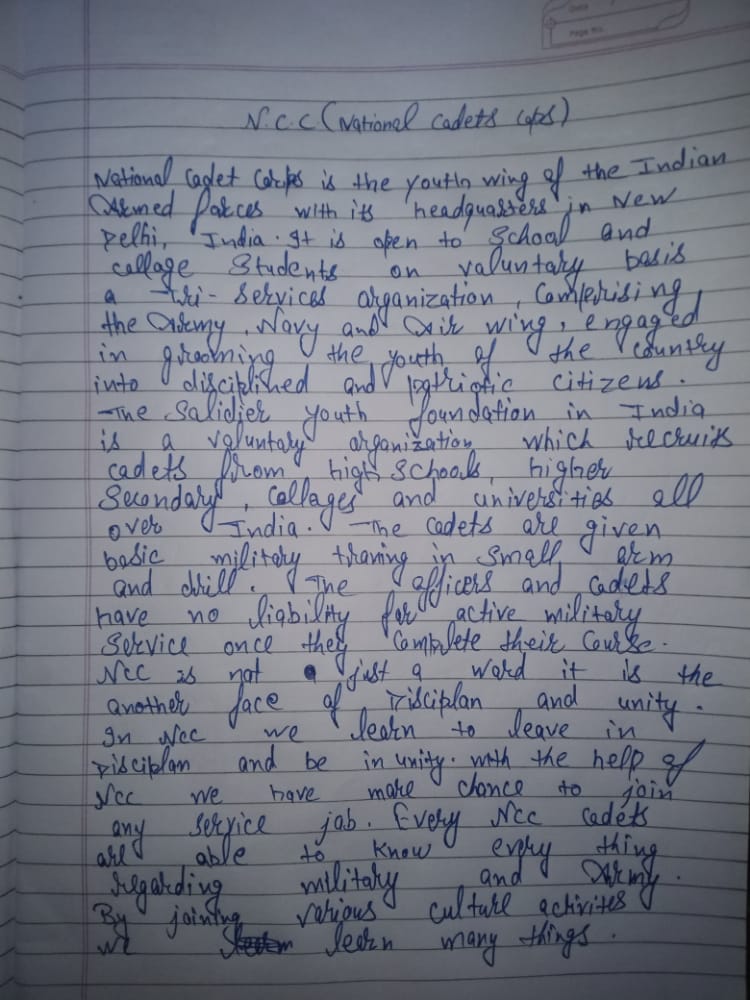 Date
Page No.
N.C.C (National Cadets Cops)
National Cadet Corps is the youth wing of the Indian
Armed forces with its headquarters in New
Delhi, India. It is open to School and
collage Students on valuntary basis
a Tri-Services organization, Comprising
the Army, Navy and Air wing, engaged
in grooming the youth of the country
into disciplined and patriotic citizens.
The Salidier youth foundation in India
is a valuntary organization which recruits
cadets from high schools, higher
Secondary, collages and universities all
over India. The cadets are given
basic military traning in small arm
and drill. The officers and cadets
have no liability for active military
Service once they Complete their Course.
NCC is not just a word it is the
another face of Disciplan and unity.
In NCC we learn to leave in
Disciplan and be in unity. with the help of
NCC we have mare chance to join
any service jab. Every NCC cadets
are able to know every thing
regarding military and Army.
By joining various culture activites
we learn many things.